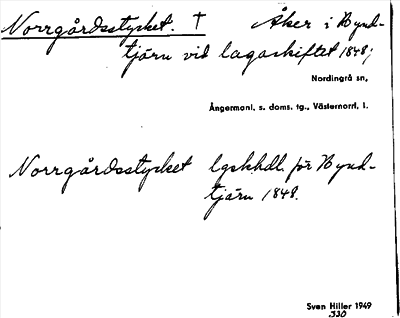 Norrgårdsstycket. † Åker i Bynd-
tjärn vid lagaskiftet 1848;
Nordingrå sn,
Ångermanl. s. doms. tg., Västernorrl. l.
Norrgårdsstycket lgskhdl. för Bynd-
tjärn 1848.
Sven Hiller 1949
330